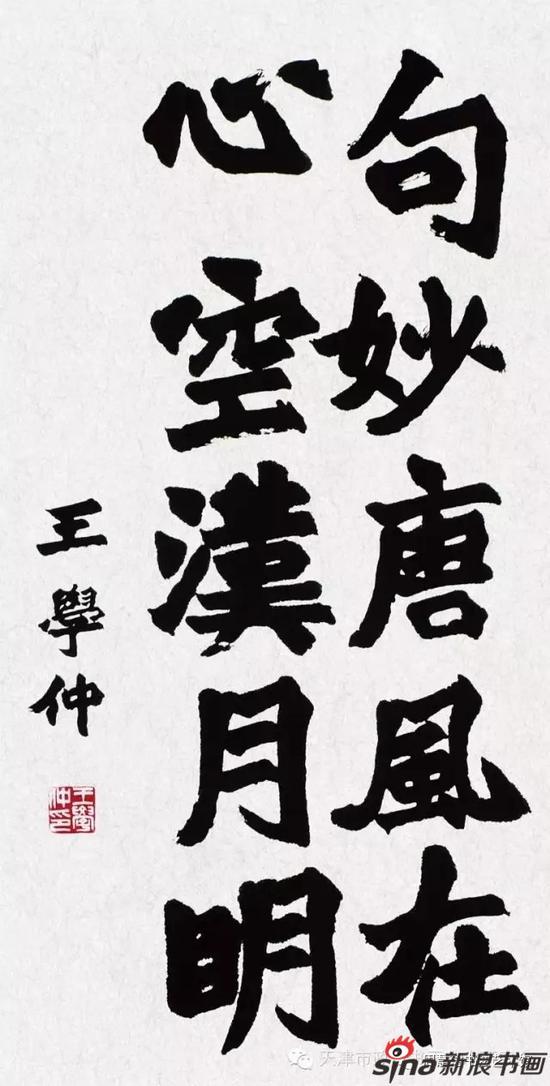 句妙唐風在
心空漢月明
王學仲
王學仲印
sina新浪书画